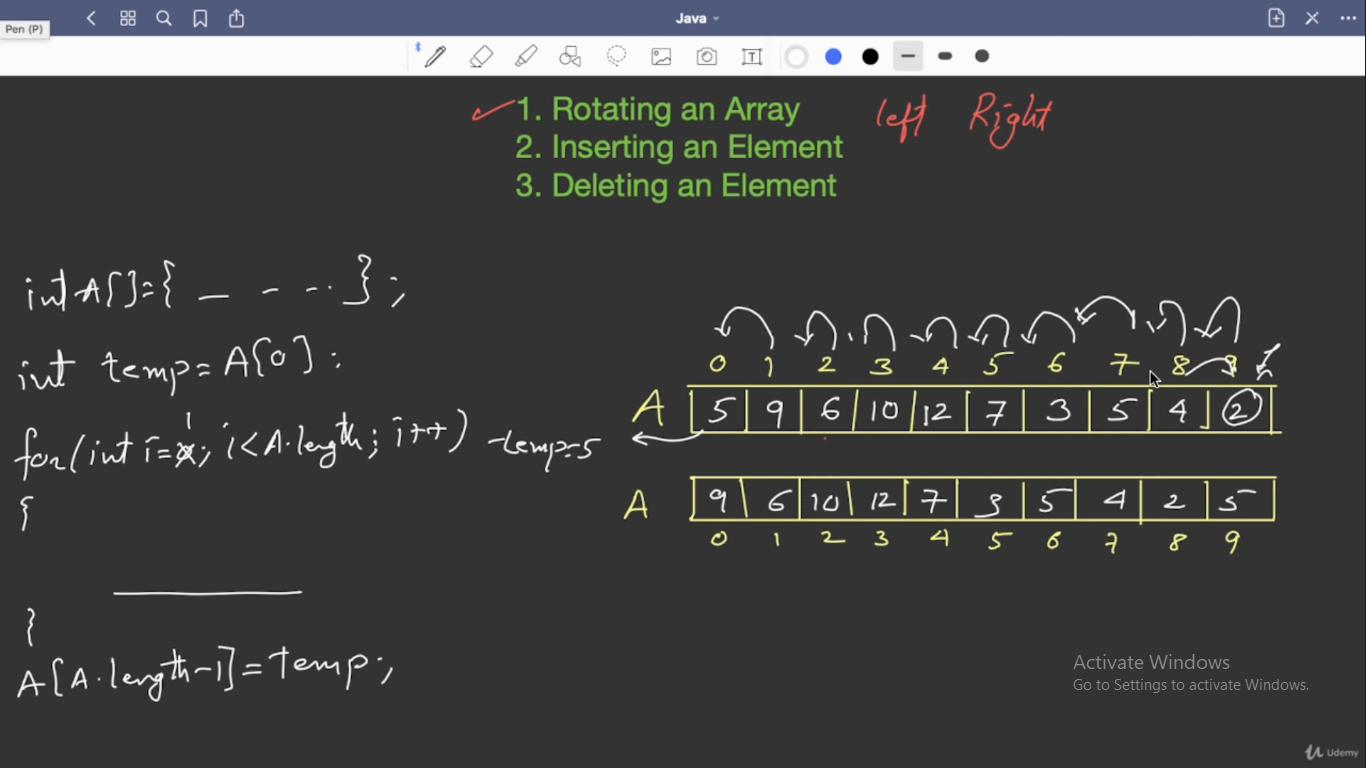 Java
Pen (P)
T
1. Rotating an Array left Right
2. Inserting an Element
3. Deleting an Element
int A[]={ _ - - .. };
int temp=A[0];
for(int i=x; i<A.length; i++) temp=5
1
{
}
A[A.length-1]=temp;
0 1 2 3 4 5 6 7 8 9
A 5 9 6 10 12 7 3 5 4 2
A 9 6 10 12 7 3 5 4 2 5
0 1 2 3 4 5 6 7 8 9
Activate Windows
Go to Settings to activate Windows.
Udemy